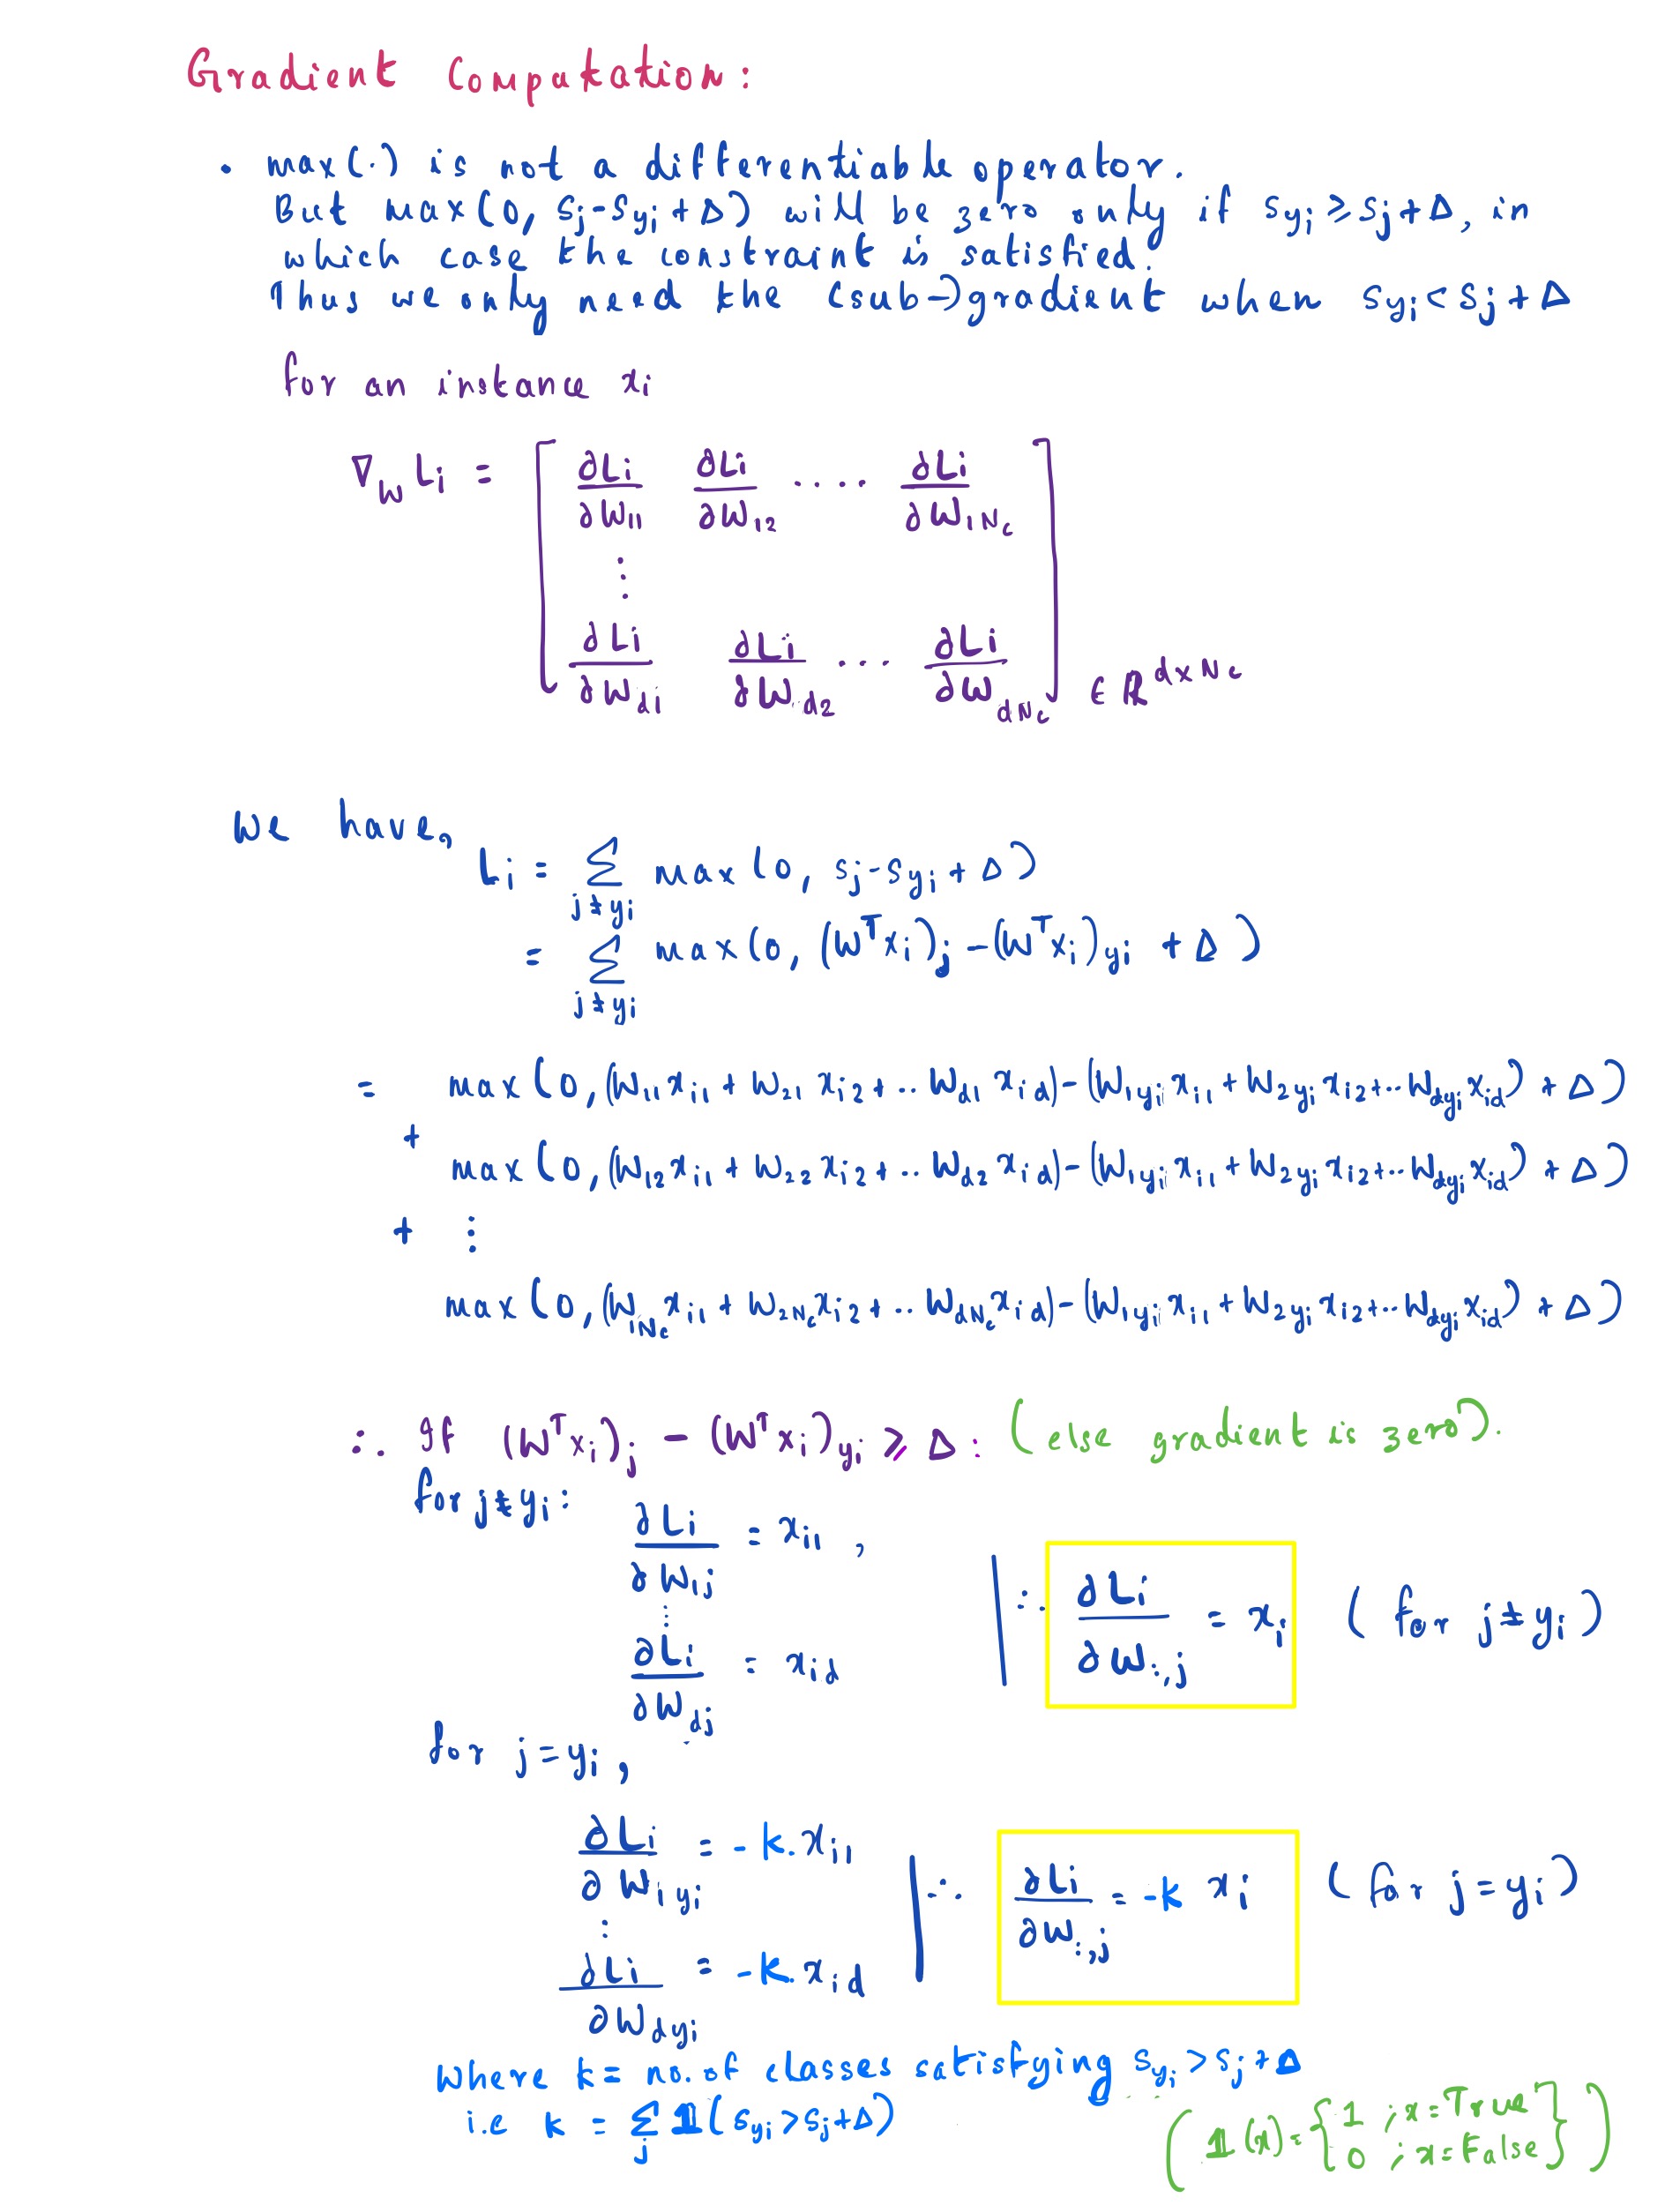 Gradient Computation:
• max(.) is not a differentiable operator.
But max(0, sj-syi+Δ) will be zero only if syi ≥ sj+Δ, in
which case the constraint is satisfied.
Thus we only need the (sub-)gradient when syi < sj + Δ
for an instance xi
∇W Li = [ ∂Li/∂W11 ∂Li/∂W12 .... ∂Li/∂W1Nc
⋮
∂Li/∂Wd1 ∂Li/∂Wd2 ... ∂Li/∂WdNc ] ∈ R^d×Nc
We have,
Li = Σ j≠yi max(0, sj-syi + Δ)
= Σ j≠yi max(0, (W^T xi)j - (W^T xi)yi + Δ)
= max(0, (W11 xi1 + W21 xi2 + .. Wd1 xid) - (W1yi xi1 + W2yi xi2 + .. Wdyi xid) + Δ)
+
max(0, (W12 xi1 + W22 xi2 + .. Wd2 xid) - (W1yi xi1 + W2yi xi2 + .. Wdyi xid) + Δ)
+ ⋮
max(0, (W1Nc xi1 + W2Nc xi2 + .. WdNc xid) - (W1yi xi1 + W2yi xi2 + .. Wdyi xid) + Δ)
∴ If (W^T xi)j - (W^T xi)yi ≥ Δ: (else gradient is zero).
for j≠yi:
∂Li/∂W1j = xi1 ,
⋮
∂Li/∂Wdj = xid
∴ ∂Li/∂W:,j = xi (for j≠yi)
for j=yi,
∂Li/∂W1yi = -k.xi1
⋮
∂Li/∂Wdyi = -k.xid
∴ ∂Li/∂W:,j = -k xi (for j=yi)
Where k = no. of classes satisfying syi > sj + Δ
i.e k = Σj 𝟙(syi > sj+Δ)
(𝟙(x) = {1 ; x=True
0 ; x=False})